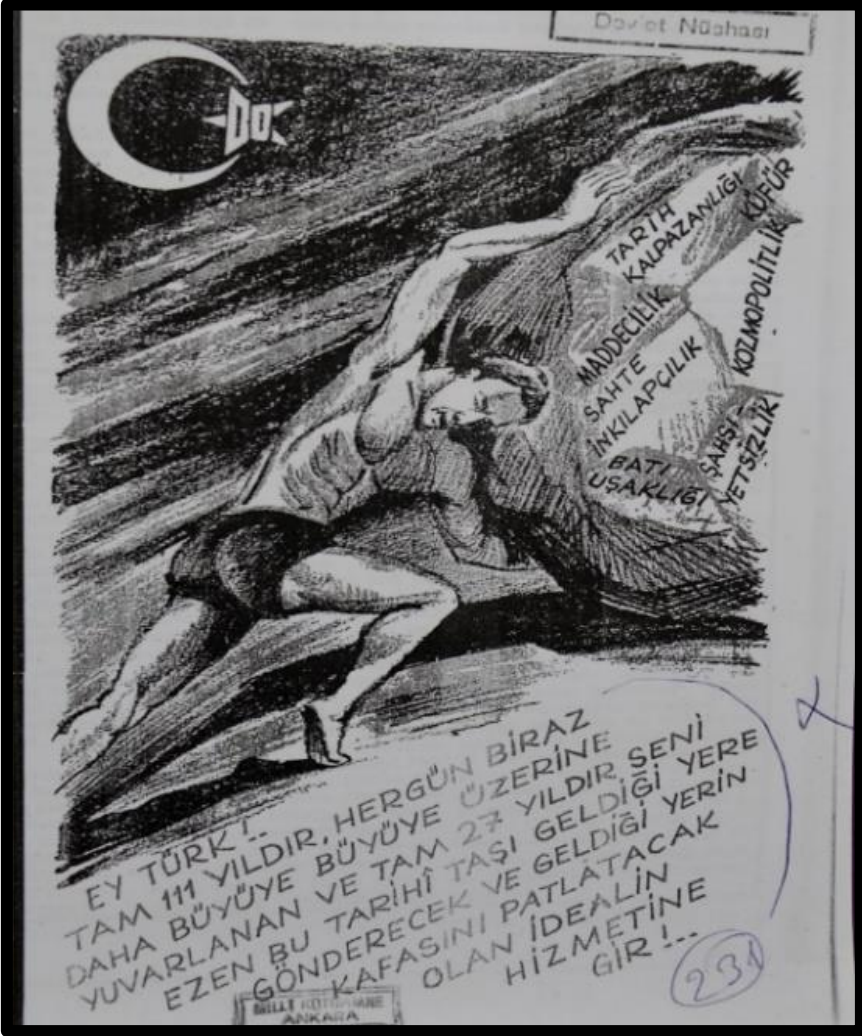 Devlet Nüshası
DO
TARİH
KALPAZANLIĞI
KÜFÜR
MADDECİLİK
KOZMOPOLİTLİK
SAHTE
İNKILAPÇILIK
ŞAHSİ-
YETSİZLİK
BATI
UŞAKLIĞI
EY TÜRK!..
TAM 111 YILDIR, HERGÜN BİRAZ
DAHA BÜYÜYE BÜYÜYE ÜZERİNE
YUVARLANAN VE TAM 27 YILDIR SENİ
EZEN BU TARİHÎ TAŞI GELDİĞİ YERE
GÖNDERECEK VE GELDİĞİ YERİN
KAFASINI PATLATACAK
OLAN İDEALİN
HİZMETİNE
GİR!..
231
MİLLİ KÜTÜPHANE
ANKARA